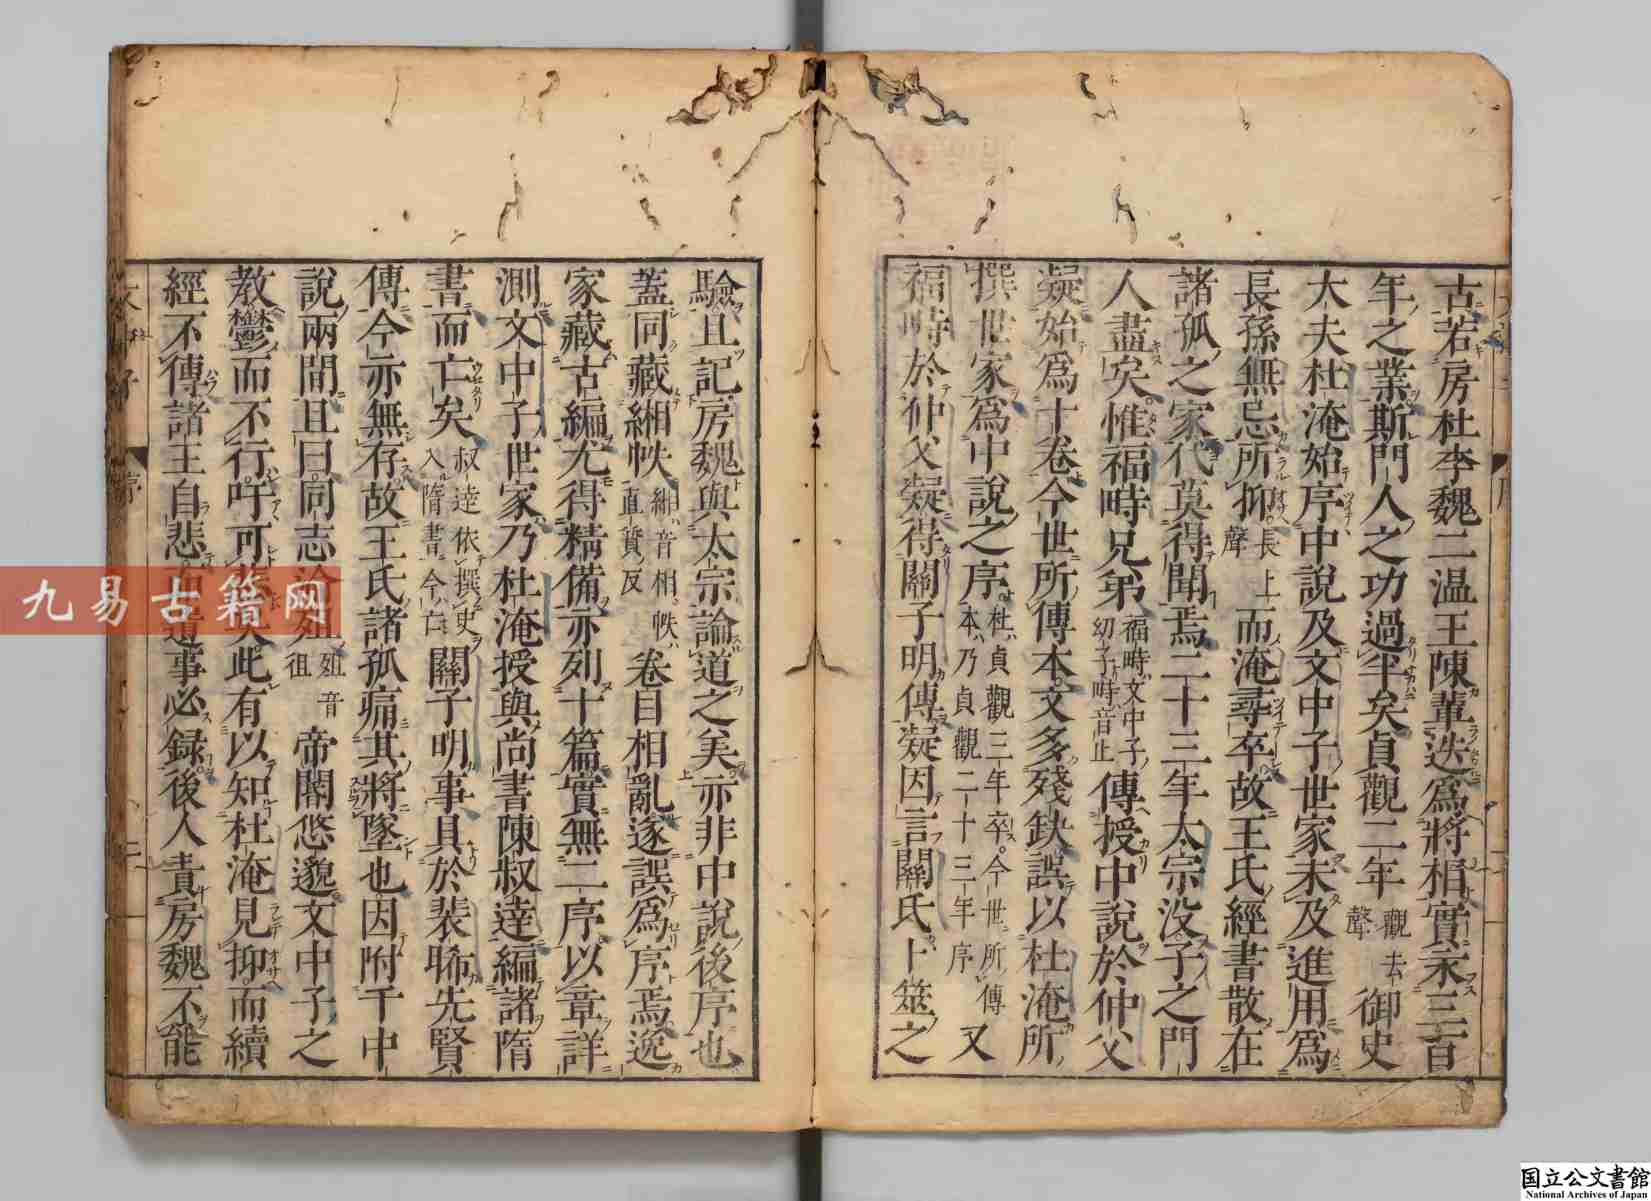 古若房杜李魏二温王陳輩迭爲將相實永三百
年之業斯門人之功過半矣貞觀二年觀去聲御史
大夫杜淹始序中說及文中子世家未及進用爲
長孫無忌所抑長上聲而淹尋卒故王氏經書散在
諸孤之家代莫得聞焉二十三年太宗没子之門
人盡矣惟福畤兄弟福畤文中子幼子畤音止傳授中說於仲父
凝始爲十卷今世所傳本文多殘缺誤以杜淹所
撰世家爲中說之序杜貞觀三年卒今世所傳本乃貞觀二十三年序又
福畤於仲父凝得關子明傳凝因言關氏卜筮之
驗且記房魏與太宗論道之美亦非中說後序也
蓋同藏緗帙緗音相帙直質反卷目相亂遂誤爲序焉逸
家藏古編尤得精備亦列十篇實無二序以章詳
測文中子世家乃杜淹授與尚書陳叔逹編諸隋
書而亡矣叔逹依撰史入隋書今亡關子明事具於裴晞先賢
傳今亦無存故王氏諸孤痛其將墜也因附于中
說兩間且曰同志淪殂殂音徂帝閽悠邈文中子之
教鬱而不行吁可悲矣此有以知杜淹見抑而續
經不傳諸王自悲而遺事必録後人責房魏不能
文中子 序 二
九易古籍网
国立公文書館
National Archives of Japan